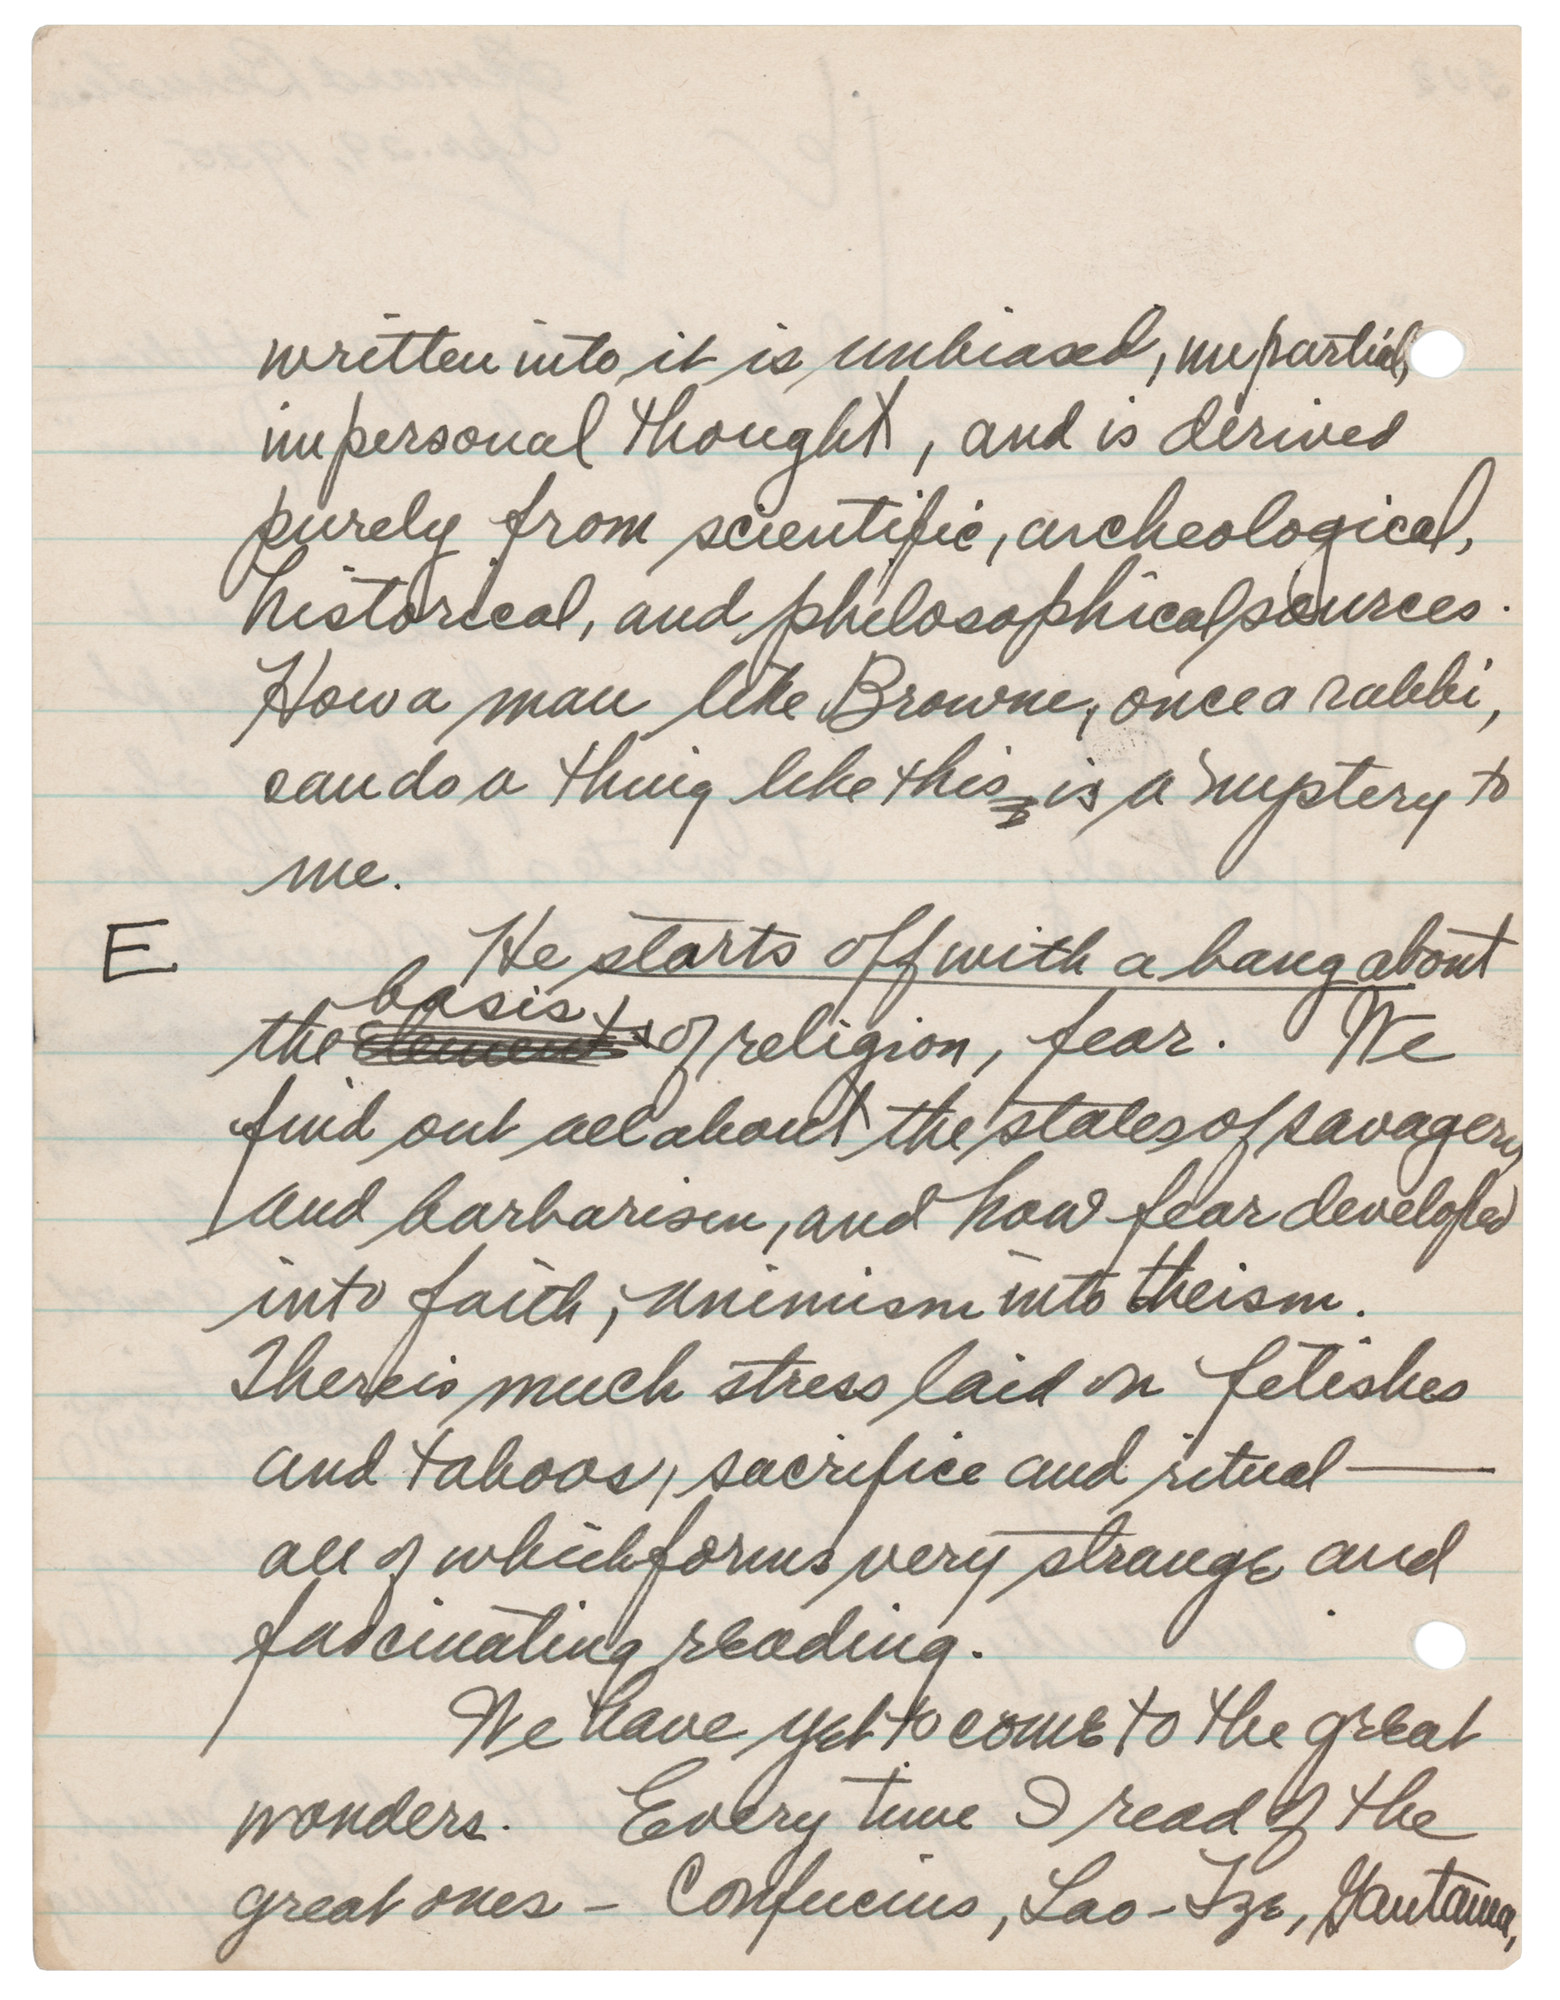 written into it is unbiased, impartial,
impersonal thought, and is derived
purely from scientific, archeological,
historical, and philosophical sources.
How a man like Browne, once a rabbi,
can do a thing like this is a mystery to
me.
E
He starts off with a bang about
basis
the elements of religion, fear. We
find out all about the states of savagery
and barbarism, and how fear developed
into faith, animism into theism.
There is much stress laid on fetishes
and taboos, sacrifice and ritual —
all of which forms very strange and
fascinating reading.
We have yet to come to the great
wonders. Every time I read of the
great ones – Confucius, Lao-Tze, Gautama,